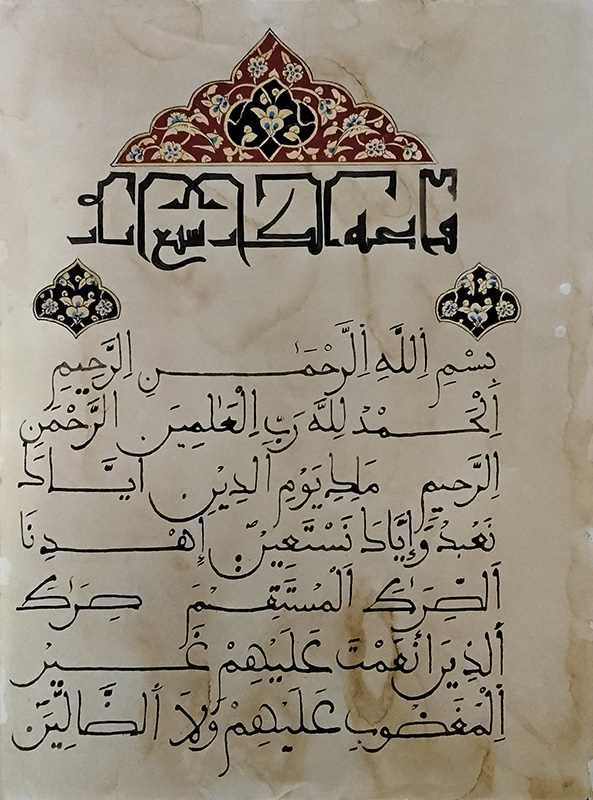 فاتحة الكتاب سبع ايات
بِسْمِ اِللَّهِ اِلرَّحْمَٰنِ اِلرَّحِيمِ
اِلْحَمْدُ لِلَّهِ رَبِّ اِلْعَٰلَمِينَ اَلرَّحْمَٰنِ
اِلرَّحِيمِ مَلِكِ يَوْمِ اِلدِّينِ إِيَّاكَ
نَعْبُدُ وَإِيَّاكَ نَسْتَعِينُ إِهْدِنَا
اَلصِّرَٰطَ اَلْمُسْتَقِيمَ صِرَٰطَ
اَلذِينَ أَنْعَمْتَ عَلَيْهِمْ غَيْرِ
اِلْمَغْضُوبِ عَلَيْهِمْ وَلَا اَلضَّالِّينَ